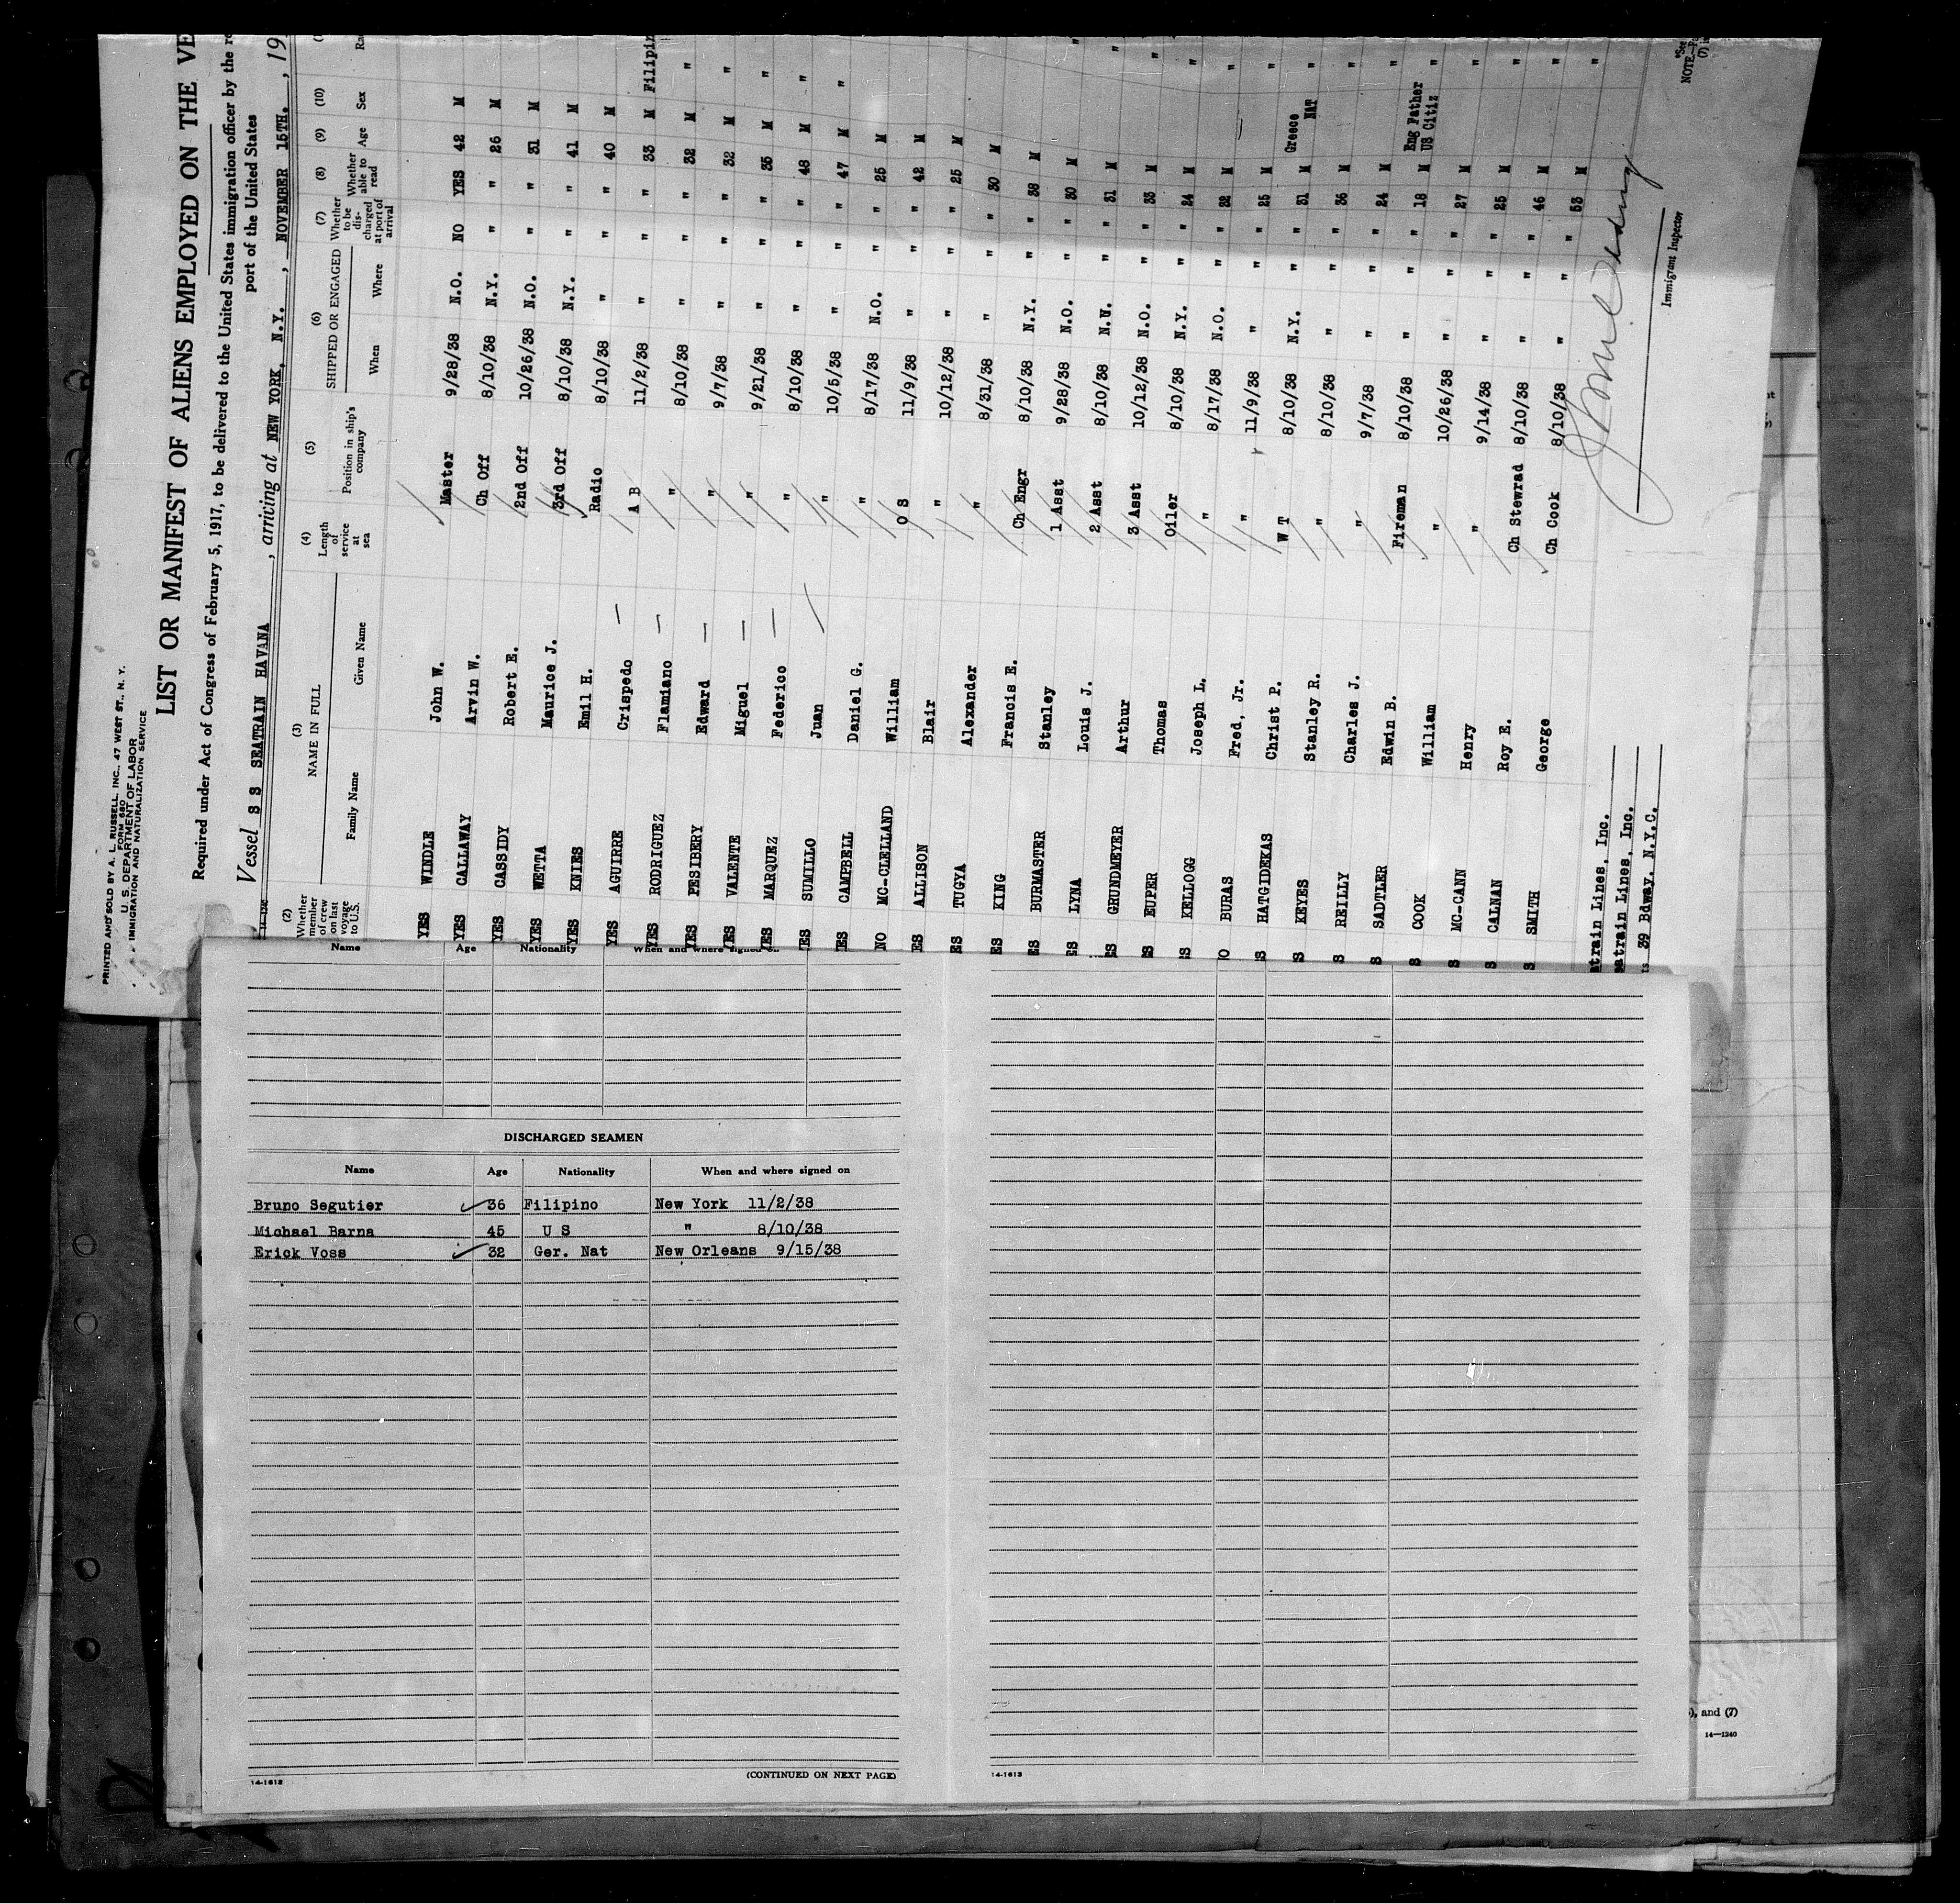 PRINTED AND SOLD BY A. L. RUSSELL, INC., 47 WEST ST., N. Y.
FORM 680
U. S. DEPARTMENT OF LABOR
IMMIGRATION AND NATURALIZATION SERVICE
LIST OR MANIFEST OF ALIENS EMPLOYED ON THE VE
Required under Act of Congress of February 5, 1917, to be delivered to the United States immigration officer by the re
port of the United States
Vessel S S SEATRAIN HAVANA , arriving at NEW YORK, N.Y. , NOVEMBER 15TH. , 19
(2) (3) (4) (5) (6) (7) (8) (9) (10)
Whether member of crew on last voyage to U.S. NAME IN FULL Family Name Given Name Length of service at sea Position in ship's company SHIPPED OR ENGAGED When Where Whether to be discharged at port of arrival Whether able to read Age Sex Ra
YES WINDLE John W. Master 9/28/38 N.O. NO YES 42 M
YES CALLAWAY Arvin W. Ch Off 8/10/38 N.Y. " " 26 M
YES CASSIDY Robert E. 2nd Off 10/26/38 N.O. " " 31 M
YES WETTA Maurice J. 3rd Off 8/10/38 N.Y. " " 41 M
YES KNIES Emil H. Radio 8/10/38 " " " 40 M
YES AGUIRRE Crispedo A B 11/2/38 " " " 33 M Filipin
YES RODRIGUEZ Flamiano " 8/10/38 " " " 32 M "
YES PESIBERY Edward " 9/7/38 " " " 32 M "
YES VALENTE Miguel " 9/21/38 " " " 35 M "
YES MARQUEZ Federico " 8/10/38 " " " 48 M "
YES SUMILLO Juan " 10/5/38 " " " 47 M "
YES CAMPBELL Daniel G. " 8/17/38 N.O. " " 25 M
NO MC-CLELLAND William O S 11/9/38 " " " 42 M
ES ALLISON Blair " 10/12/38 " " " 25 M
ES TUGYA Alexander " 8/31/38 " " " 30 M
ES KING Francis E. Ch Engr 8/10/38 N.Y. " " 38 M
ES BURMASTER Stanley 1 Asst 9/28/38 N.O. " " 30 M "
ES LYNA Louis J. 2 Asst 8/10/38 " " 31 M "
ES GRUNDMEYER Arthur 3 Asst 10/12/38 N.O. " " 33 M "
ES EUPER Thomas Oiler 8/10/38 N.Y. " " 24 M "
ES KELLOGG Joseph L. " 8/17/38 N.O. " " 32 M "
O BURAS Fred, Jr. " 11/9/38 " " " 25 M "
S HATGIDEKAS Christ P. W T 8/10/38 N.Y. " " 31 M Greece NAT "
S KEYES Stanley R. " 8/10/38 " " " 36 M "
S REILLY Charles J. " 9/7/38 " " " 24 M "
S SADTLER Edwin B. Fireman 8/10/38 " " " 18 M Eng Father US Citiz "
S COOK William " 10/26/38 " " " 27 M "
S MC-CANN Henry " 9/14/38 " " " 25 M "
S CALNAN Roy E. Ch Stewrad 8/10/38 " " " 46 M "
S SMITH George Ch Cook 8/10/38 " " " 53 M "
atrain Lines, Inc.
eatrain Lines, Inc.
ts 39 Bdway. N.Y.C.
Immigrant Inspector
"See
NOTE.—Fa
(7) i
Name Age Nationality When and where signed on
DISCHARGED SEAMEN
Name Age Nationality When and where signed on
Bruno Segutier 36 Filipino New York 11/2/38
Michael Barna 45 U S " 8/10/38
Erick Voss 32 Ger. Nat New Orleans 9/15/38
14-1613 (CONTINUED ON NEXT PAGE)
14-1613
), and (7)
14—1240